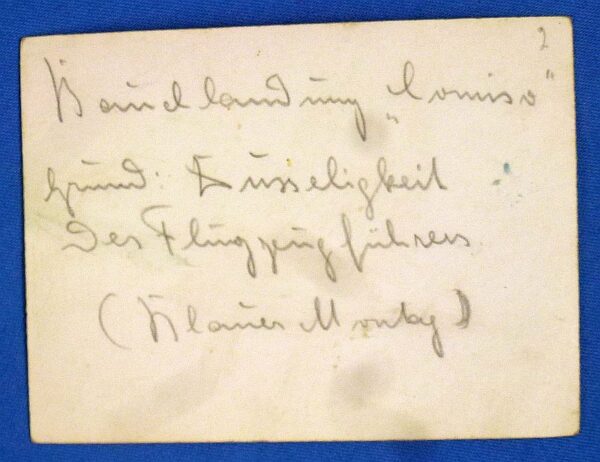 2
Bauchlandung „Comiso"
Grund: Dusseligkeit
des Flugzeugführers
(Blauer Montag)